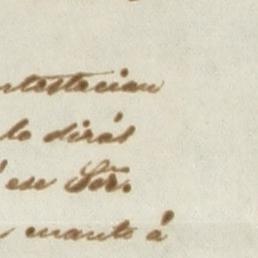 ntestacion
lo dirás
ese Sor.
cuanto á